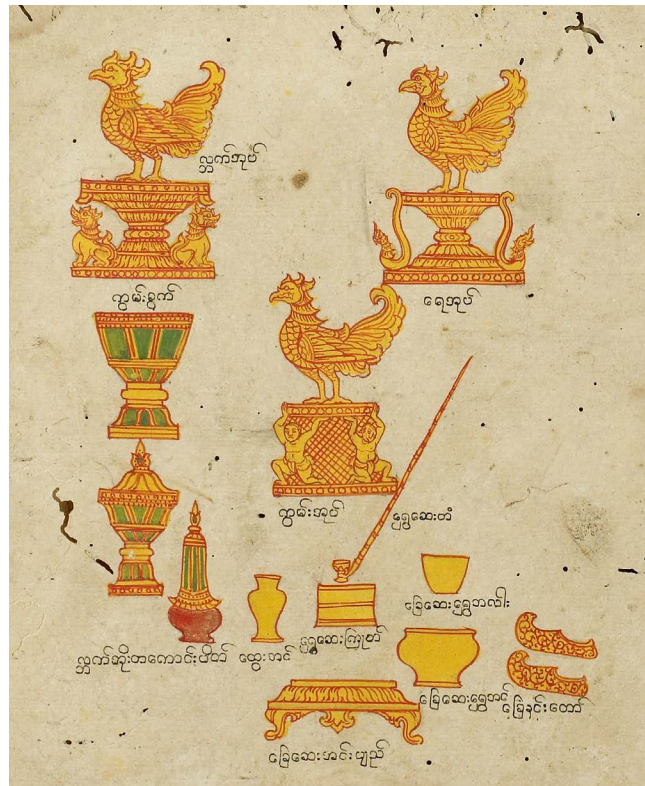 လ္ဘက်အုပ်
ကွမ်းခွက်
ရေအုပ်
ကွမ်းအုပ်
ရွှေဆေးတံ
ခြေဆေးရွှေဘလါး
လ္ဘက်အိုးတကောင်းပိတ် ထွေးအင်
ရွှေဆေးကြုတ်
ခြေဆေးရွှေအင်
ခြေနင်းတော်
ခြေဆေးအင်းပျည်